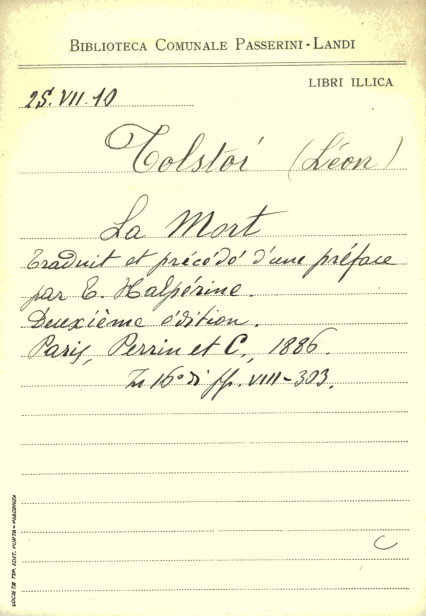 BIBLIOTECA COMUNALE PASSERINI-LANDI
LIBRI ILLICA
25.VII.10
Tolstoi (Léon)
La Mort
Traduit et précédé d'une préface
par E. Halpérine.
Deuxième édition.
Paris, Perrin et C., 1886.
In 16° di pp. VIII-303.
C
SOCIETÀ TIP. EDIT. PORTA-PIACENZA